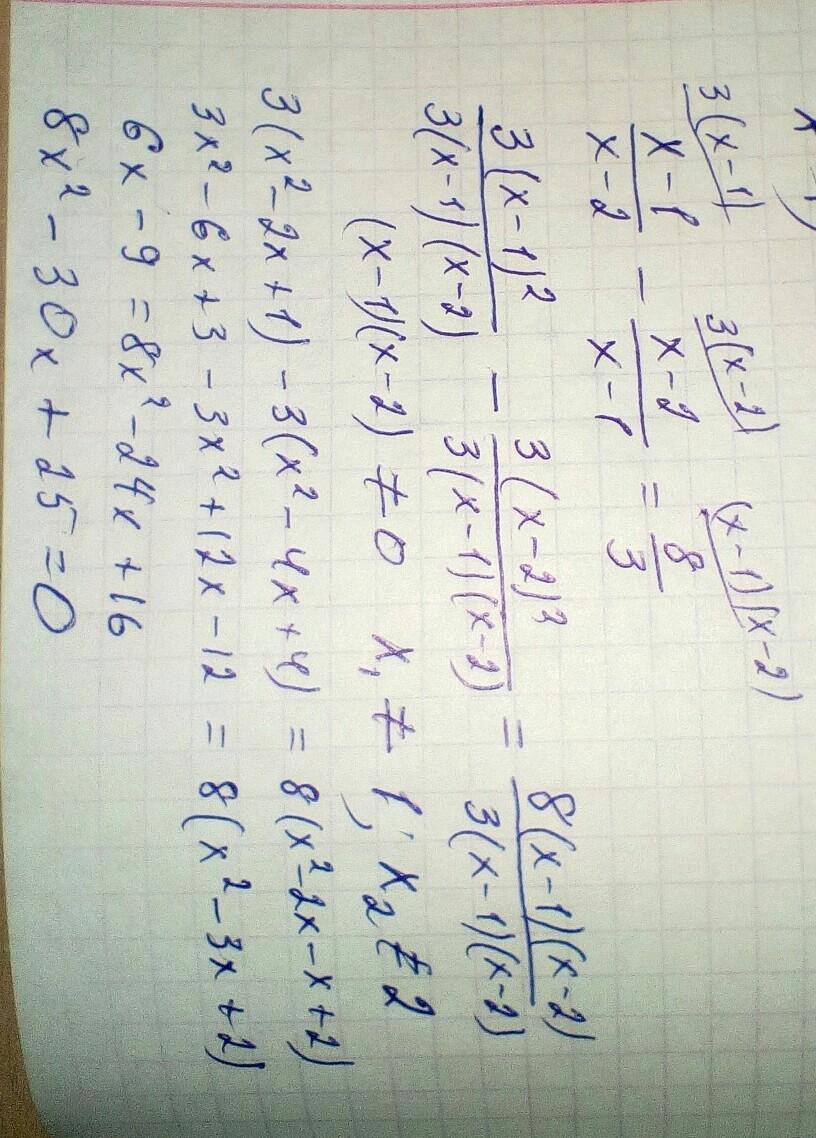 3(x-1) 3(x-2) (x-1)(x-2)
x-1/x-2 - x-2/x-1 = 8/3
3(x-1)²/3(x-1)(x-2) - 3(x-2)²/3(x-1)(x-2) = 8(x-1)(x-2)/3(x-1)(x-2)
(x-1)(x-2) ≠ 0 x₁ ≠ 1; x₂ ≠ 2
3(x²-2x+1) - 3(x²-4x+4) = 8(x²-2x-x+2)
3x²-6x+3-3x²+12x-12 = 8(x²-3x+2)
6x-9 = 8x²-24x+16
8x²-30x+25=0